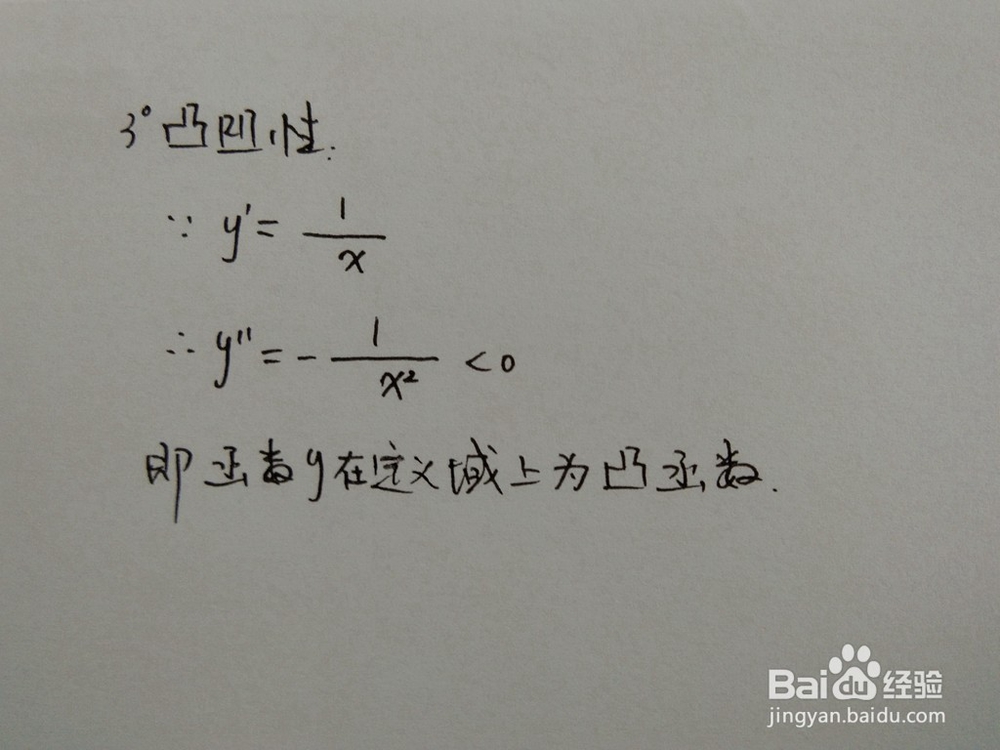 3°凸凹性.
∵ y' = 1/x
∴ y'' = - 1/x² < 0
即函数y在定义域上为凸函数.
Baidu经验
jingyan.baidu.com